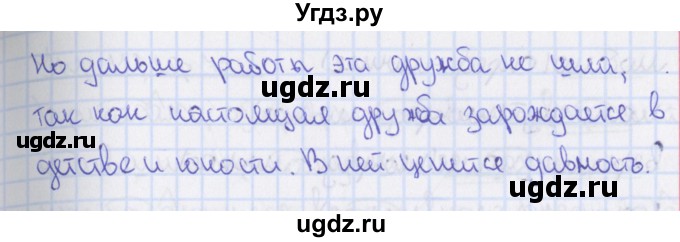 Угдз.ру
Но дальше работы эта дружба не шла,
ugdz.ru ugdz.ru
так как настоящая дружба зарождается в
ugdz.ru
детстве и юности. В ней ценится давность.
ugdz.ru ugdz.ru
ugdz.ru